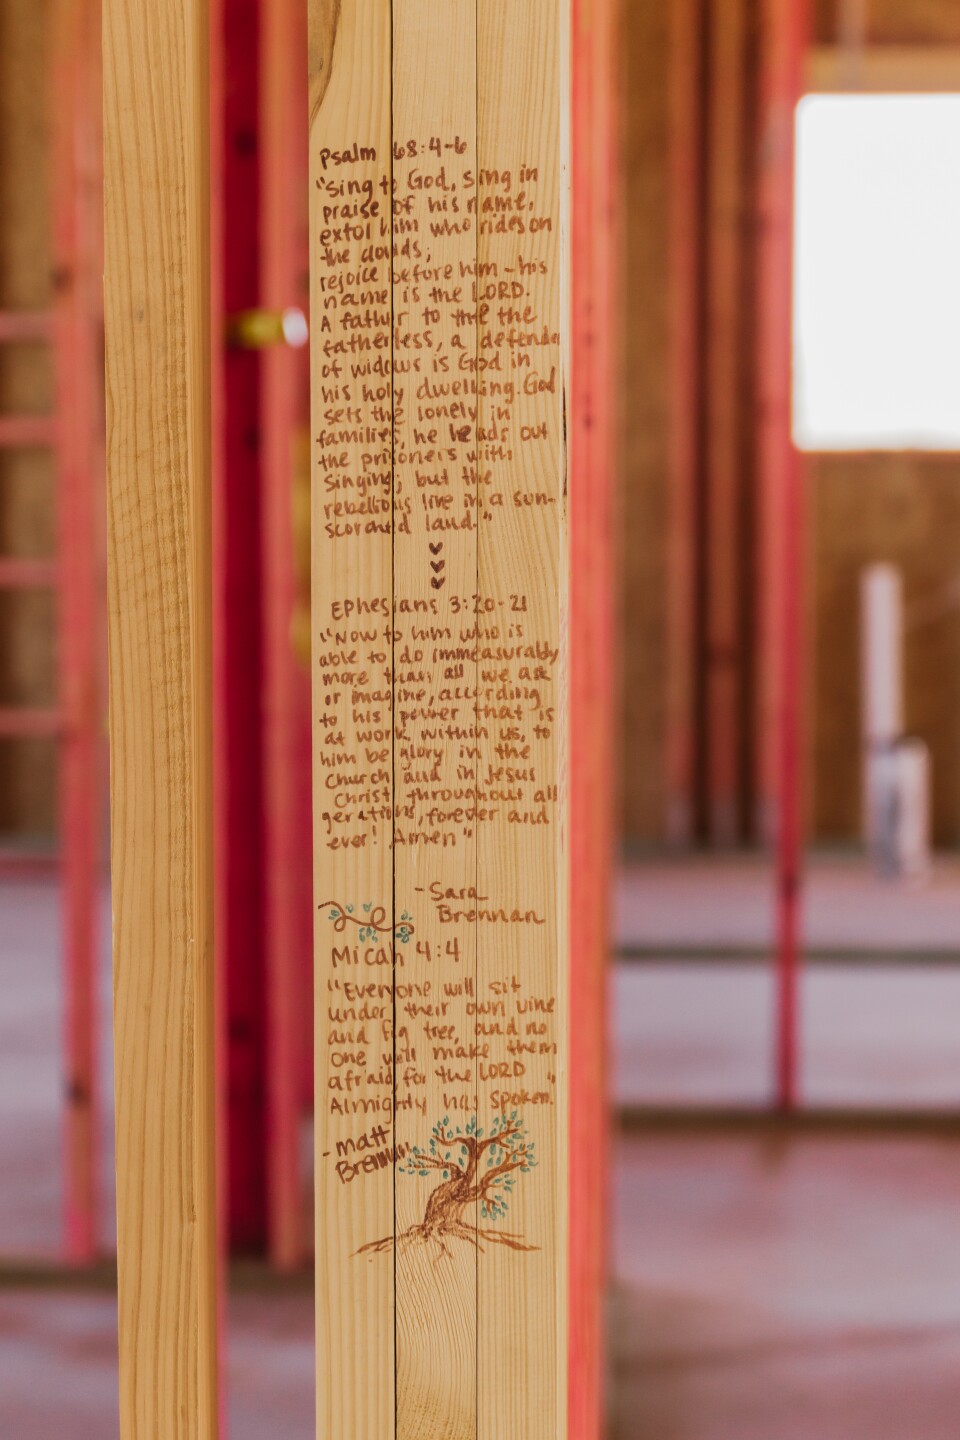 Psalm 68:4-6
"Sing to God, sing in
praise of his name,
extol him who rides on
the clouds;
rejoice before him - his
name is the LORD.
A father to the the
fatherless, a defender
of widows is God in
his holy dwelling. God
sets the lonely in
families, he leads out
the prisoners with
singing; but the
rebellious live in a sun-
scorched land."
Ephesians 3:20-21
"Now to him who is
able to do immeasurably
more than all we ask
or imagine, according
to his power that is
at work within us, to
him be glory in the
church and in Jesus
Christ throughout all
gerations, forever and
ever! Amen"
-Sara
Brennan
Micah 4:4
"Everyone will sit
under their own vine
and fig tree, and no
one will make them
afraid, for the LORD
Almighty has spoken."
-Matt
Brennan